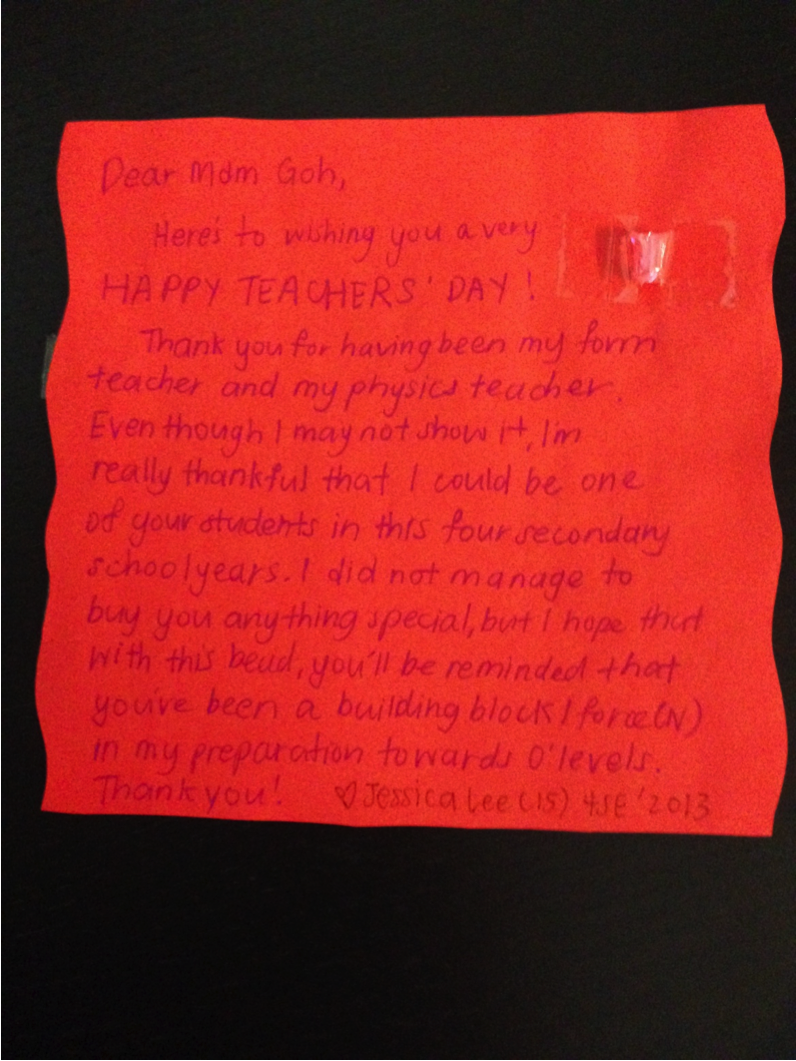 Dear Mdm Goh,
Here's to wishing you a very
HAPPY TEACHERS' DAY!
Thank you for having been my form
teacher and my physics teacher.
Even though I may not show it, I'm
really thankful that I could be one
of your students in this four secondary
school years. I did not manage to
buy you anything special, but I hope that
with this bead, you'll be reminded that
you've been a building block / force (N)
in my preparation towards O'levels.
Thank you! ♡ Jessica Lee (15) 4SE '2013